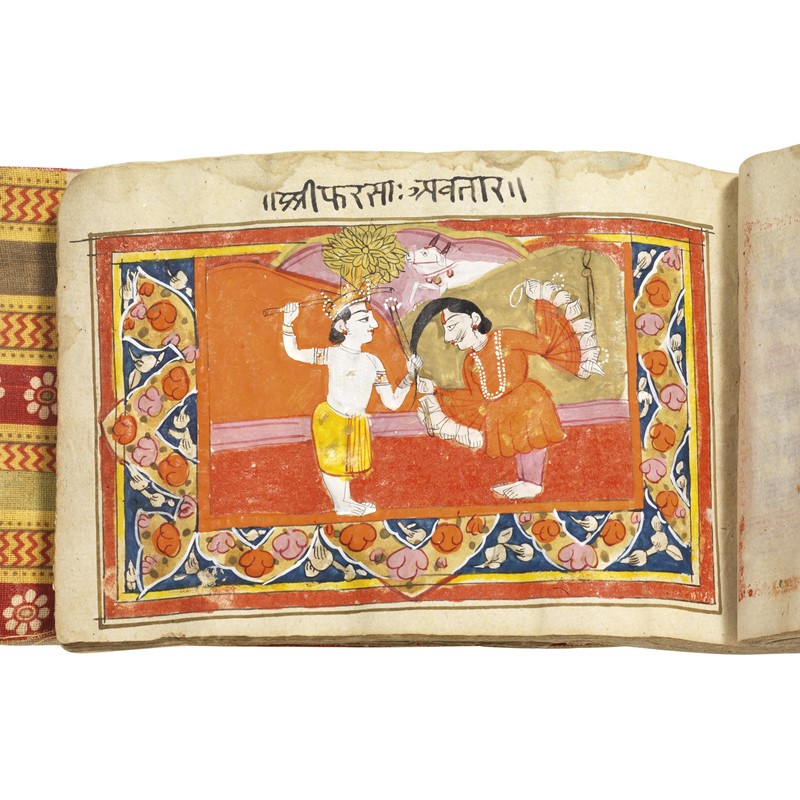 ॥श्रीफरसाः अवतार॥